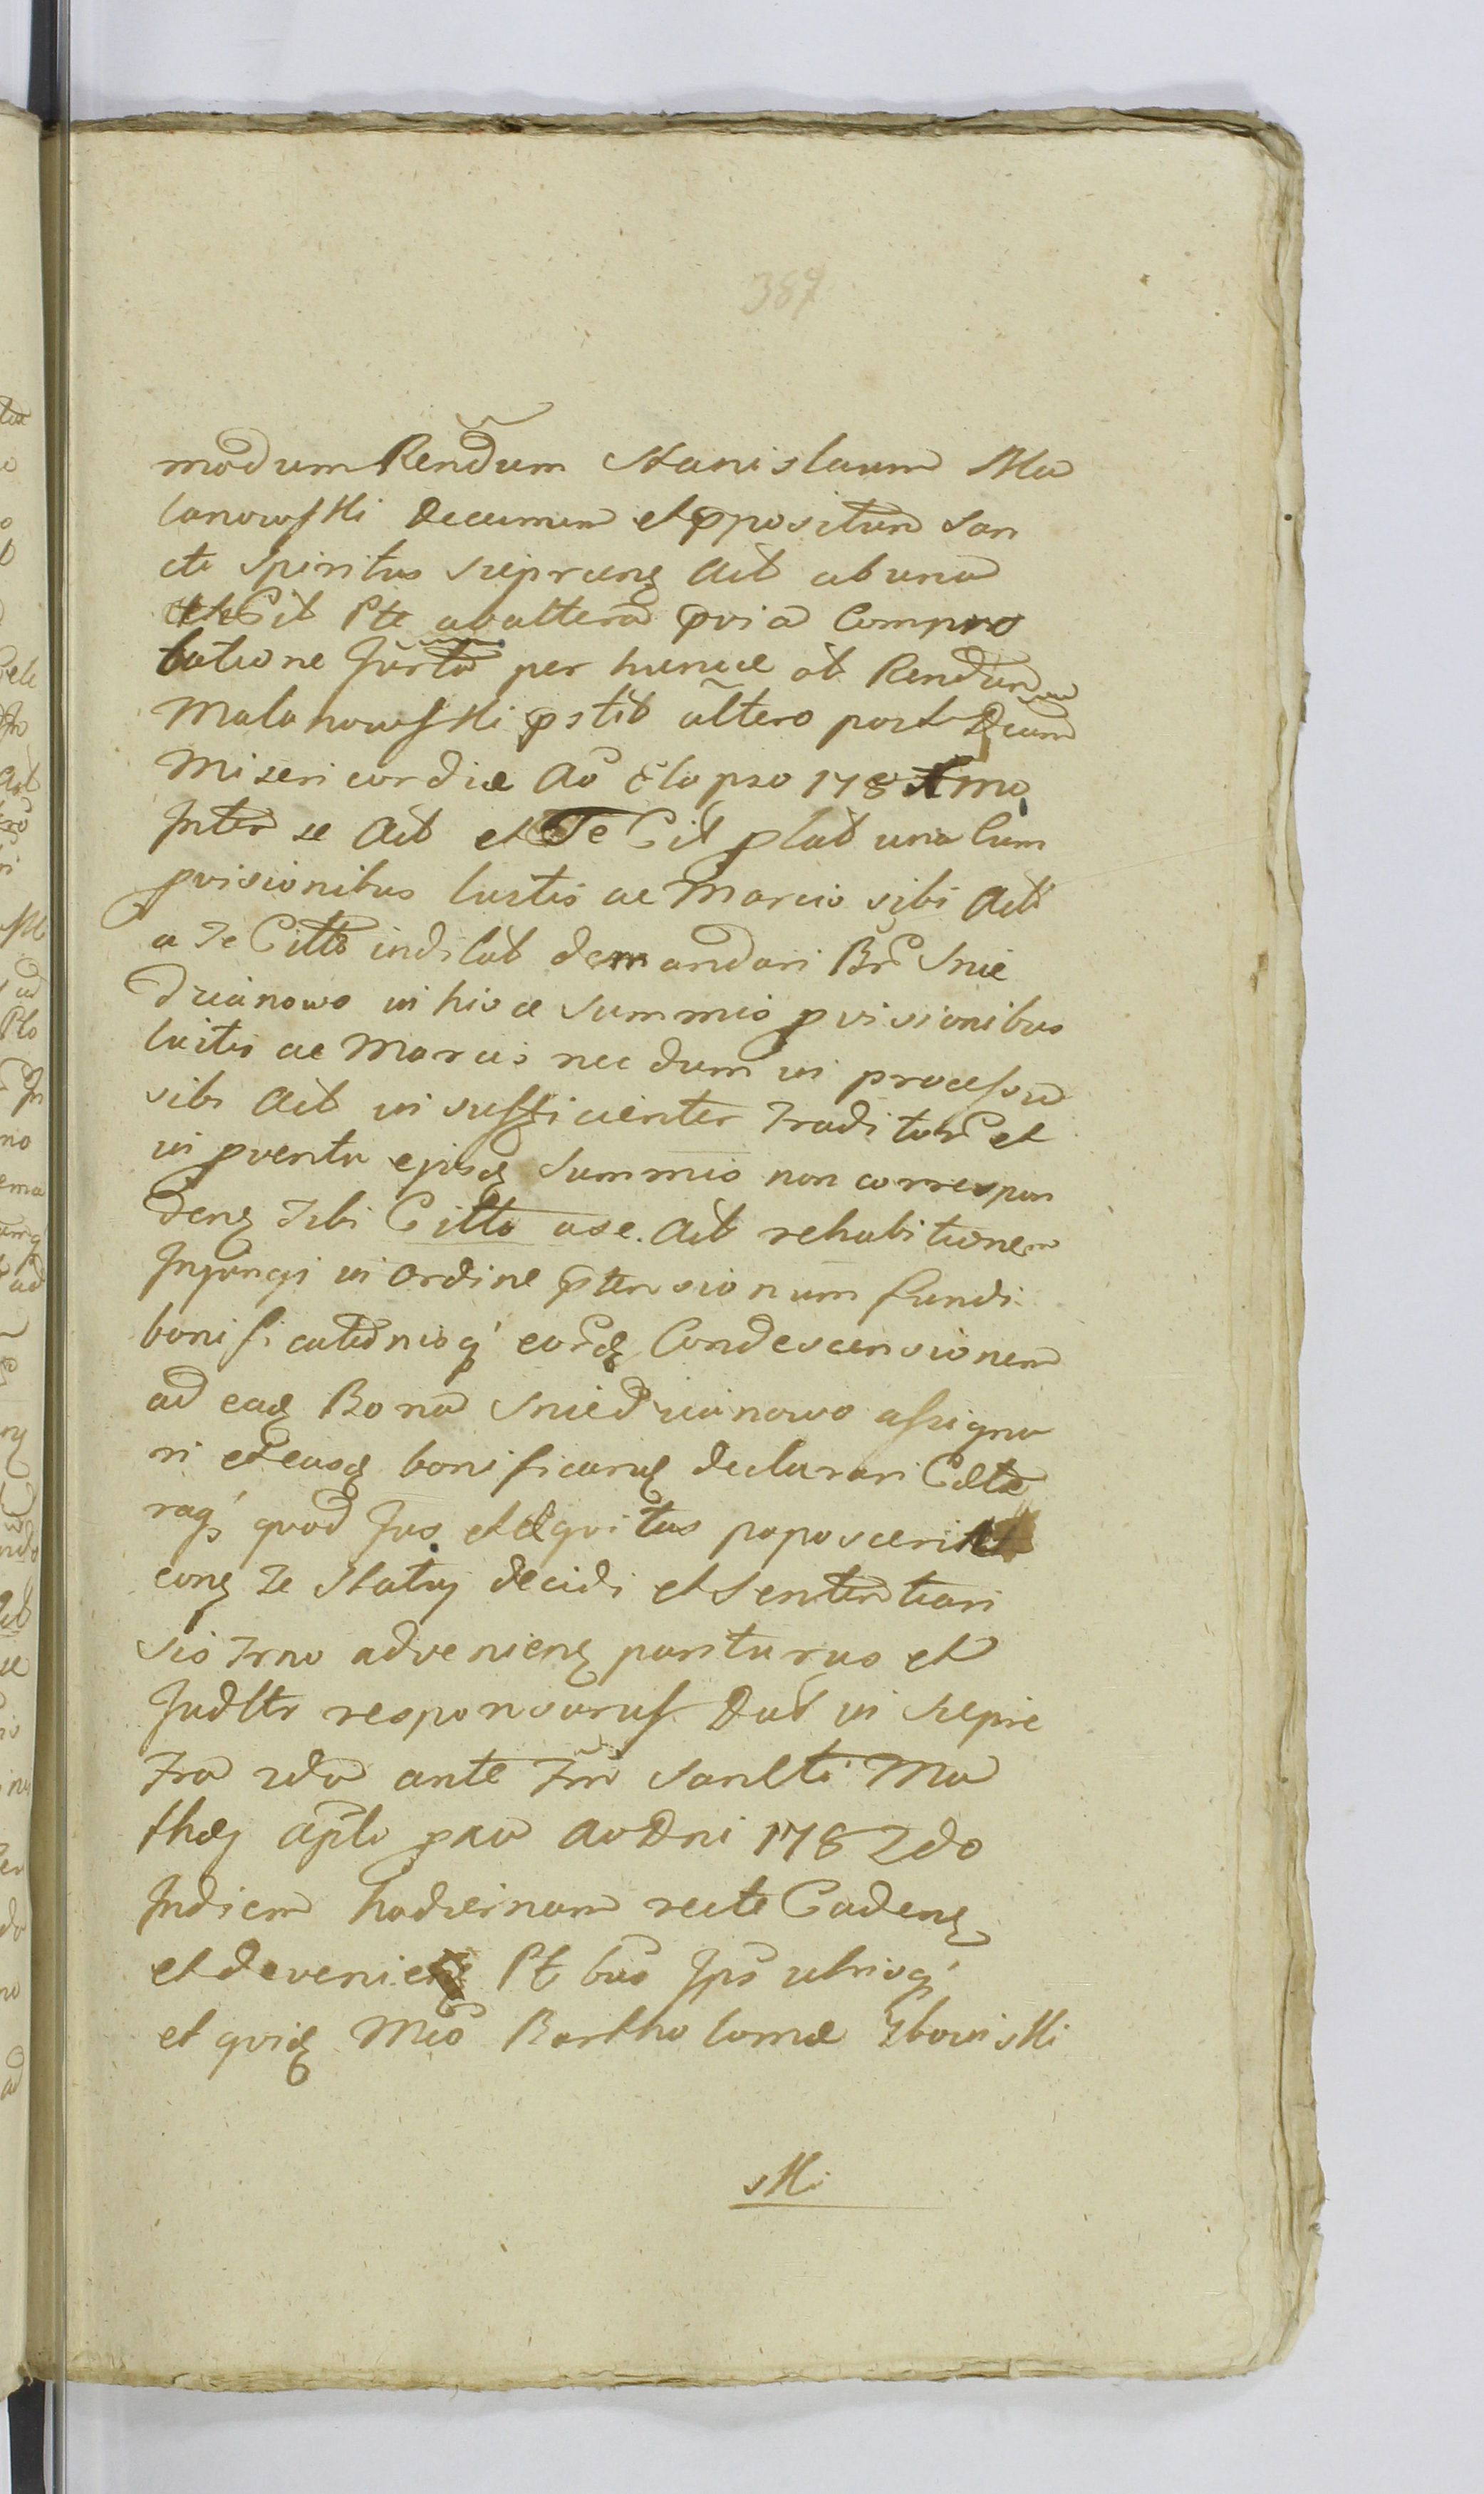 387
modum Rendum Stanislaum Ma
lanowski Decanum et ppositum San
cti Spiritus Sieprceng Act ab una
et Te Cit Pte ab altera pvia Compro
batione Jurta per hunce ad Rendum
Malanowski pstit altero post Dcam
Misericordiæ Ao Elapso 1781mo
Inter se Act et Te Cit plat una Cum
pvisionibus luitis ac Marcis sibi Act
a Te Citto indilat demandari Br Snie
drianowo in hisce Summis pvisionibus
luitis ac Marcis nec dum in processu
sibi Act insufficienter Traditor et
in pventu ejusd Summis non correspon
deng Tibi Citto ase. Act rehabitionem
Injungi in ordine ptensionum fundi
bonificationisq eord Condescensionem
ad ead Bona Sniedrianowo assigna
ri et easd bonificand declarari Cæte
raq quod Jus et Æqvitas poposcerint
cong Te Statuj decidi et Sententiari
sis Trno advenieng pariturus et
Judltr responsurus Dat in Siepre
Tra 2da ante Frn Sancti Ma
thæj Apli pxa Ao Dni 1782do
In diem hodiernam recte Cadeng
et devenieng Ptbus Ips utrisq
et qvid Mco Bartholomæ Zboinski
ski